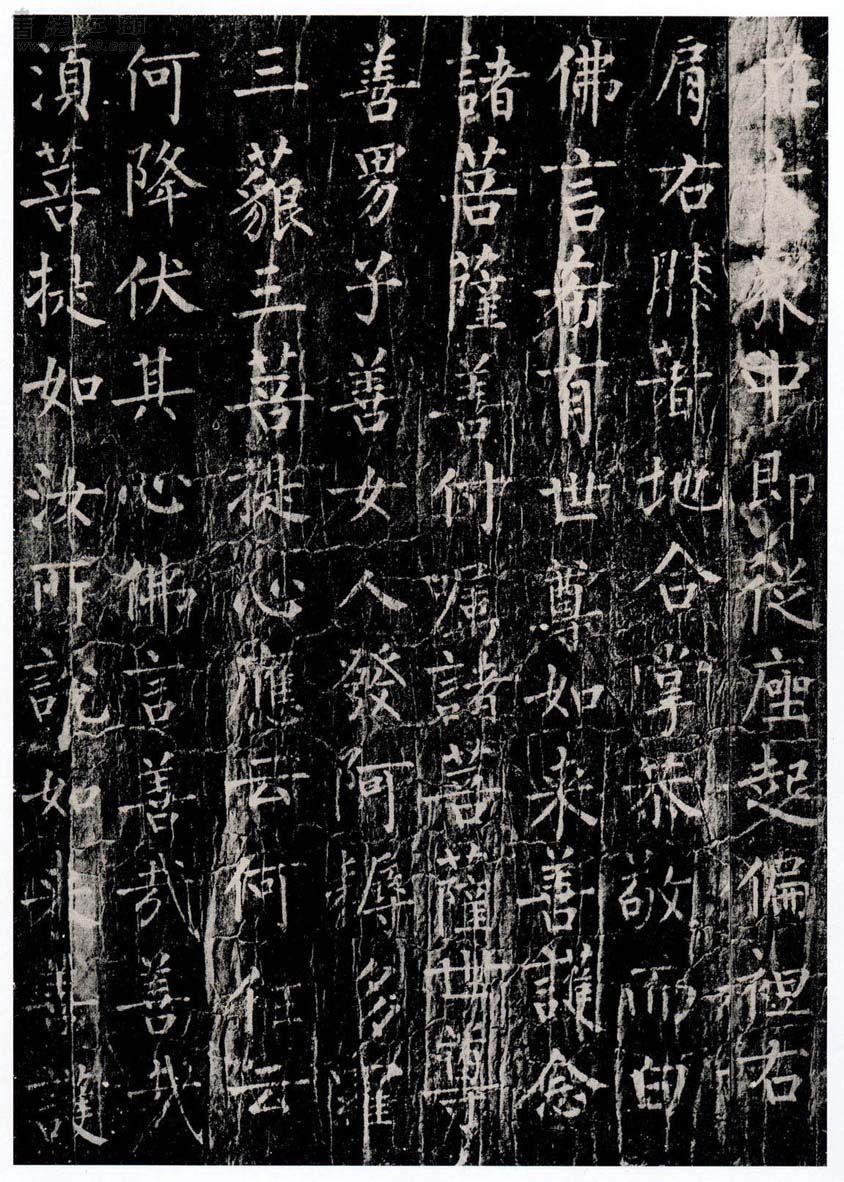 在大衆中即從座起偏袒右
肩右膝著地合掌恭敬而白
佛言希有世尊如来善護念
諸菩薩善付囑諸菩薩世尊
善男子善女人發阿耨多羅
三藐三菩提心應云何住云
何降伏其心佛言善哉善哉
湏菩提如汝所說如来善護
書法江湖